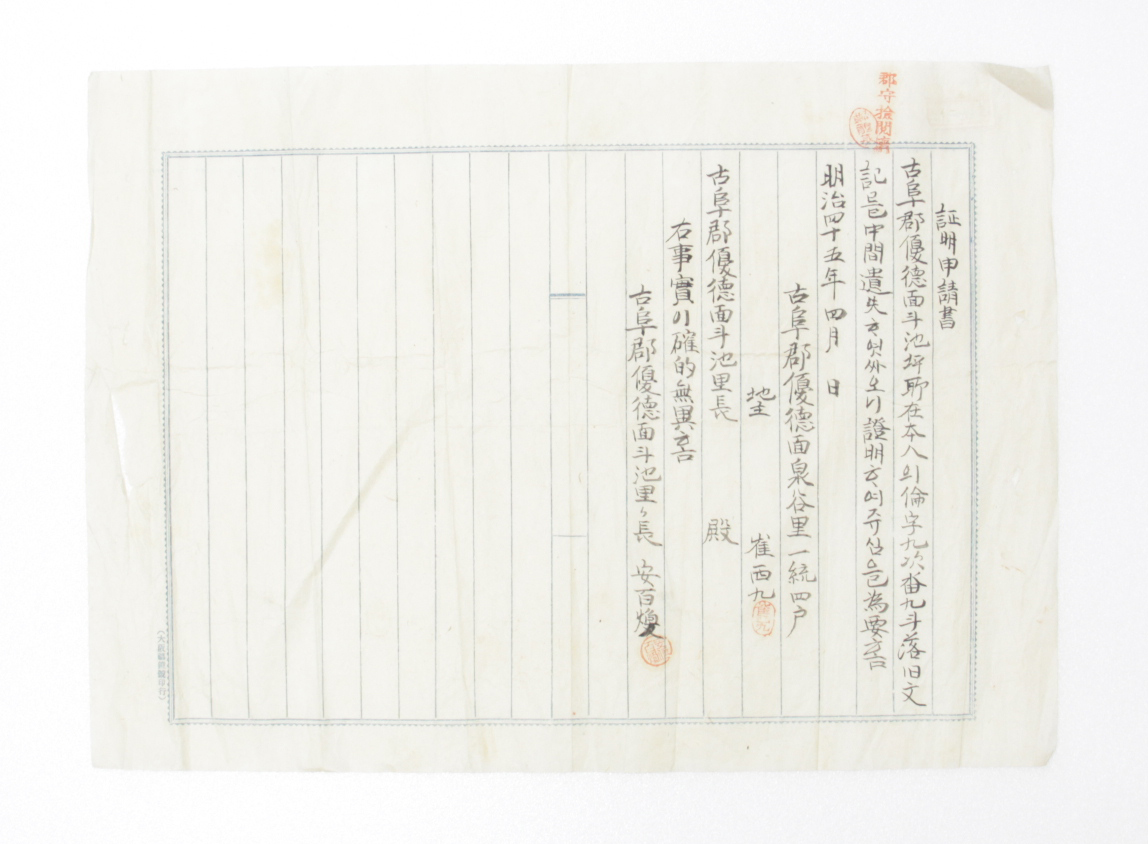 郡守檢閱濟
証明申請書
古阜郡優德面斗池坪所在本人의倫字九次畓九斗落旧文
記을中間遺失하엿싸오니證明하여주심을為要홈
明治四十五年四月 日
古阜郡優德面泉谷里一統四戶
地主 崔西九
古阜郡優德面斗池里長 殿
右事實이確的無異홈
古阜郡優德面斗池里々長 安百煥